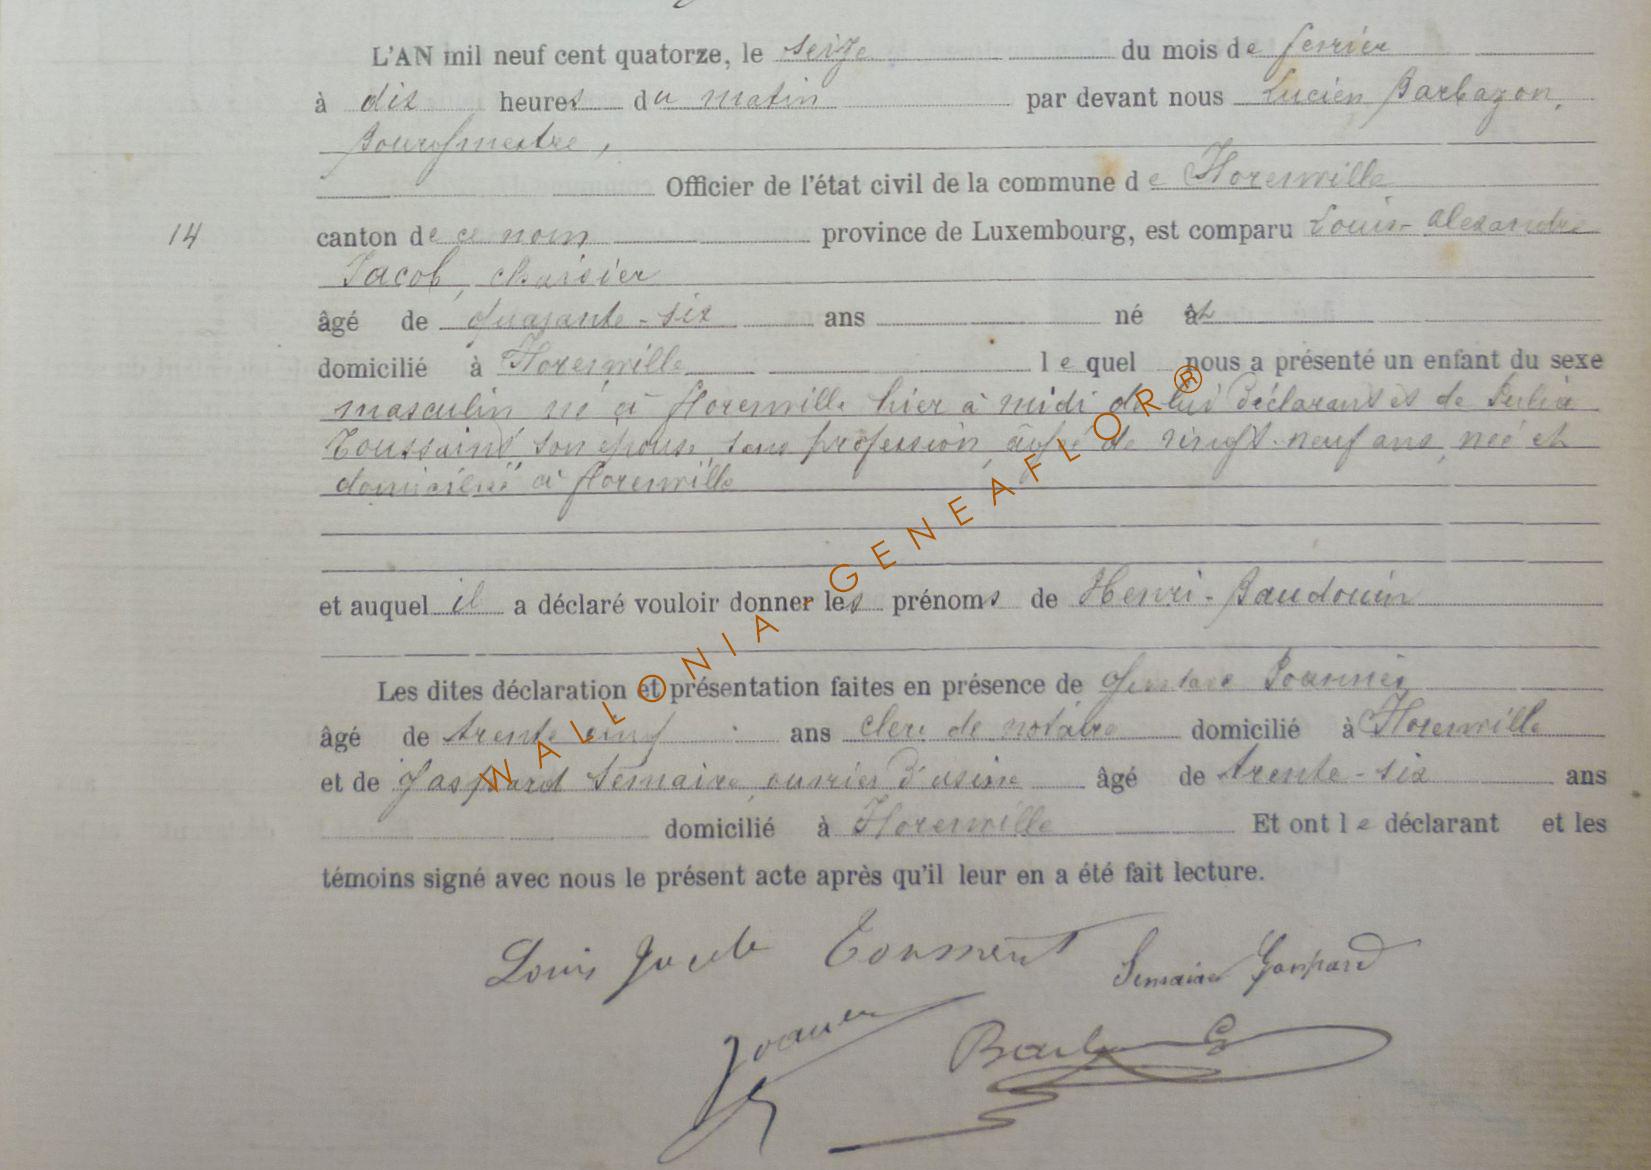 L'AN mil neuf cent quatorze, le seize du mois de février
à dix heures du matin par devant nous Lucien Barbazon,
Bourgmestre,
Officier de l'état civil de la commune de Florenville
14 canton de ce nom province de Luxembourg, est comparu Louis-Alexandre
Jacob, chaisier
âgé de quarante-six ans né et
domicilié à Florenville lequel nous a présenté un enfant du sexe
masculin né à Florenville hier à midi de lui déclarant et de
Toussaint son épouse, sans profession, âgée de vingt-neuf ans, née et
domiciliée à Florenville
et auquel il a déclaré vouloir donner les prénoms de Henri-Baudouin
Les dites déclaration et présentation faites en présence de Gustave Joannes
âgé de trente cinq ans clerc de notaire domicilié à Florenville
et de Gaspard Semaire, ouvrier d'usine âgé de trente-six ans
domicilié à Florenville Et ont le déclarant et les
témoins signé avec nous le présent acte après qu'il leur en a été fait lecture.
Louis Jacob Semaire Gaspard
WALLONIA GENEAFLOR®